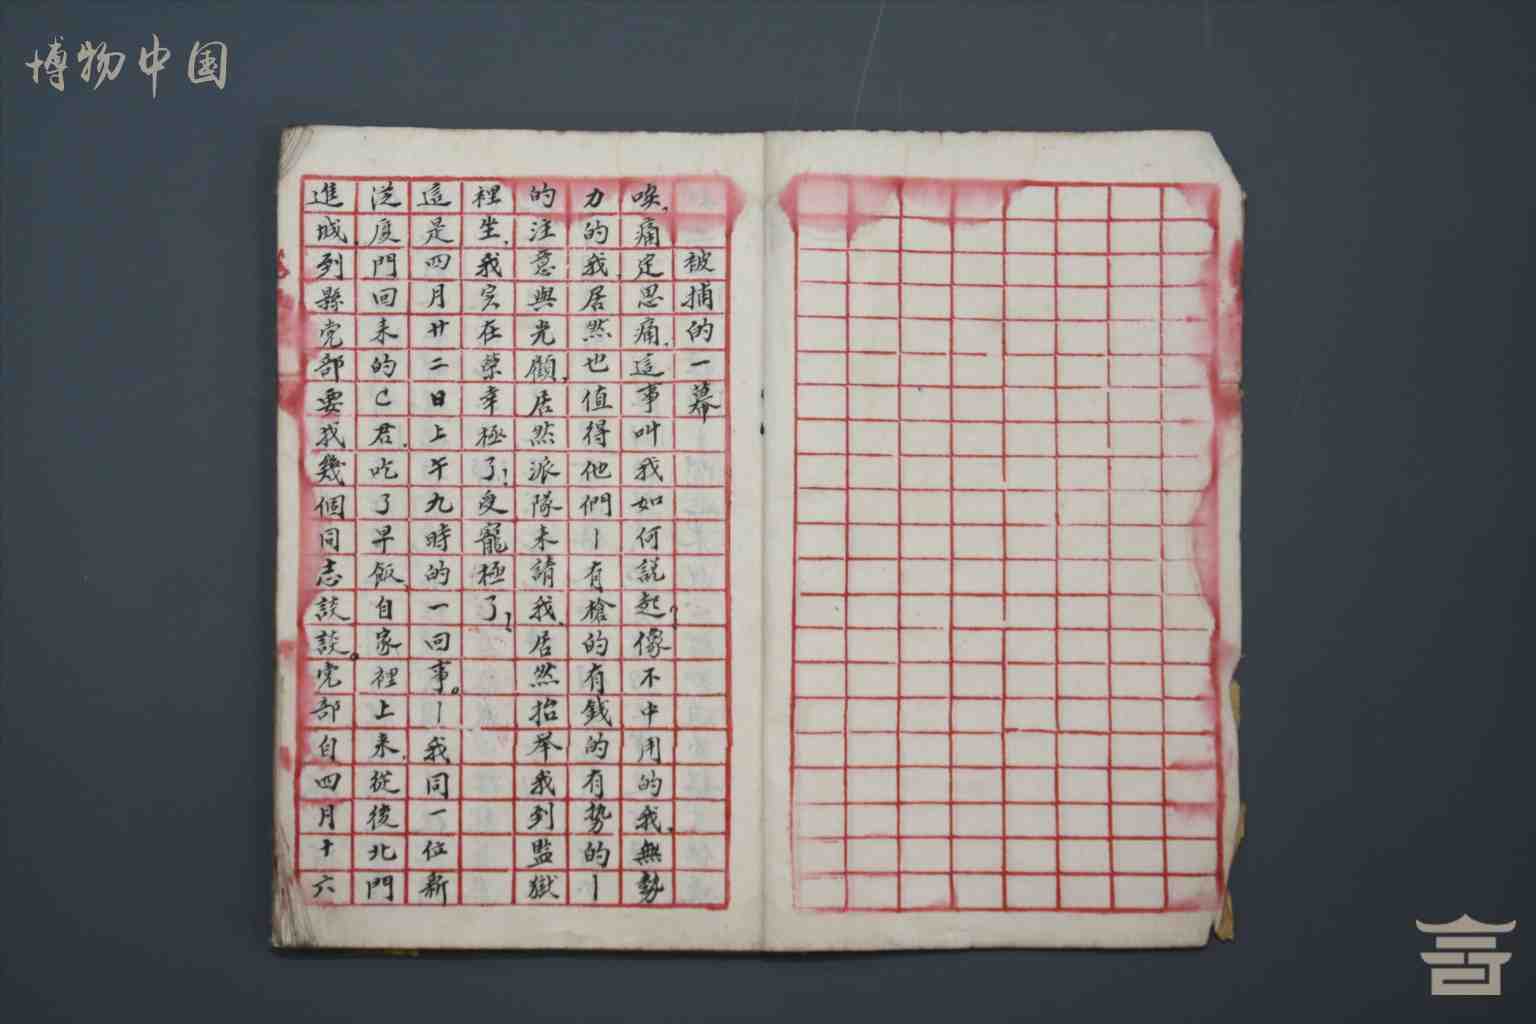 博物中国
被捕的一幕
唉，痛定思痛，這事叫我如何説起？像不中用的我，無勢
力的我，居然也值得他們—有槍的有錢的有勢的—
的注意與光顧，居然派隊來請我，居然抬举我到監獄
裡坐，我实在荣幸極了！受寵極了！
這是四月廿二日上午九時的一回事。—我同一位新
從厦門回来的C君，吃了早飯，自家裡上来，從後北門
進城，到縣党部要找幾個同志談談。党部自四月十六